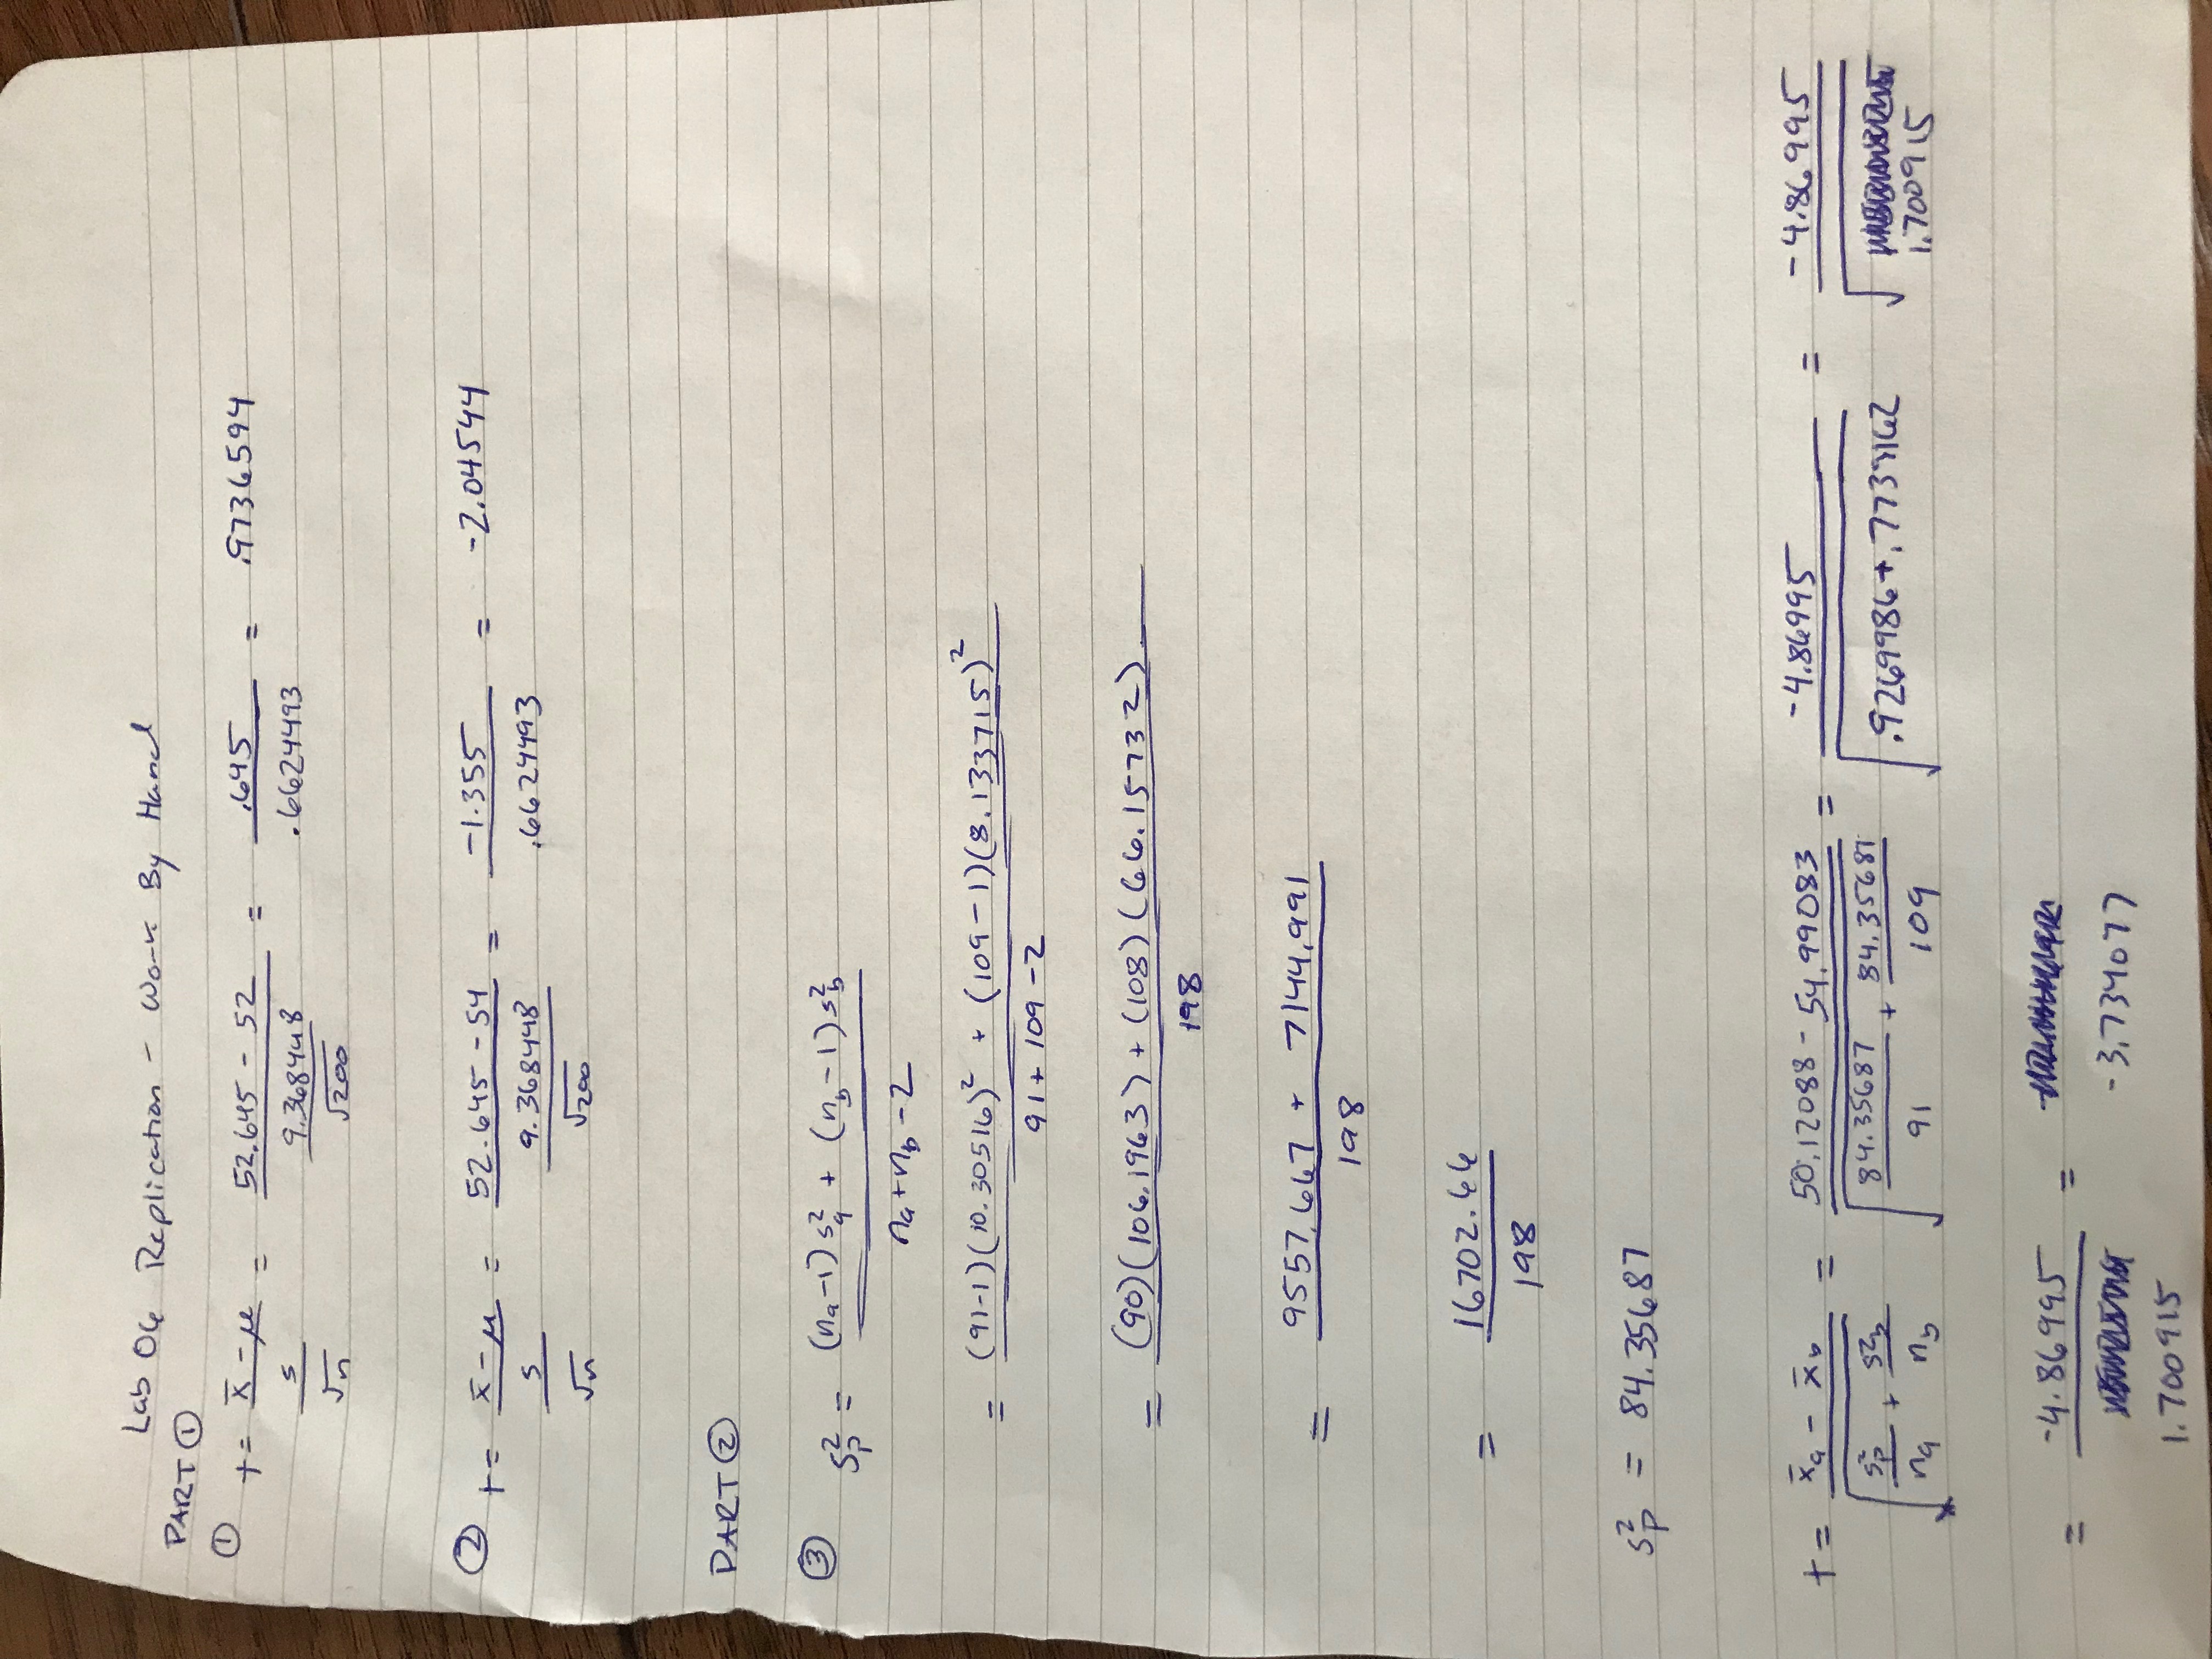 Lab 06 Replication - Work By Hand
PART ①
① t = x̄ - μ / s / √n = 52.645 - 52 / 9.368448 / √200 = .645 / .6624493 = .9736594
② t = x̄ - μ / s / √n = 52.645 - 54 / 9.368448 / √200 = -1.355 / .6624493 = -2.04544
PART ②
③ s²p = (na-1)s²a + (nb-1)s²b / na+nb-2
= (91-1)(10.30516)² + (109-1)(8.133715)² / 91+109-2
= (90)(106.1963) + (108)(66.15732) / 198
= 9557.667 + 7144.991 / 198
= 16702.66 / 198
s²p = 84.35687
t = x̄a - x̄b / √ s²p / na + s²b / nb = 50.12088 - 54.99083 / √ 84.35687 / 91 + 84.35687 / 109 = -4.86995 / √ .9269986 + .7739162 = -4.86995 / √ 1.700915
= -4.86995 / 1.700915 = -3.734077